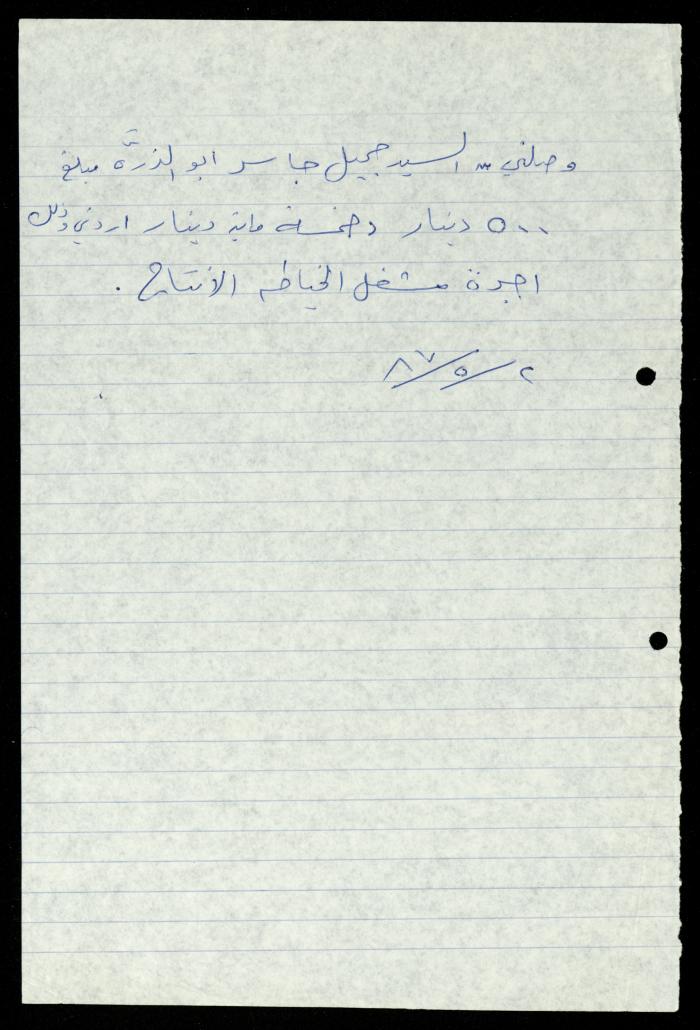 وصلني من السيد جميل جاسر ابو الذرَّه مبلغ
٥٠٠ دينار وخمسة ماية دينار اردني وذلك
اجرة مشغل الخياطه الأنتاج .
٢/٥/٨٧